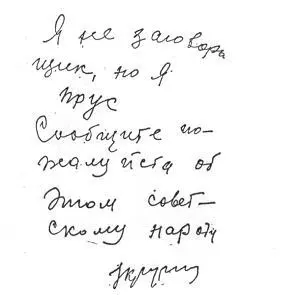 Я не заговора
щик, но я
трус
Сообщите по-
жалуйста об
этом совет-
скому народу